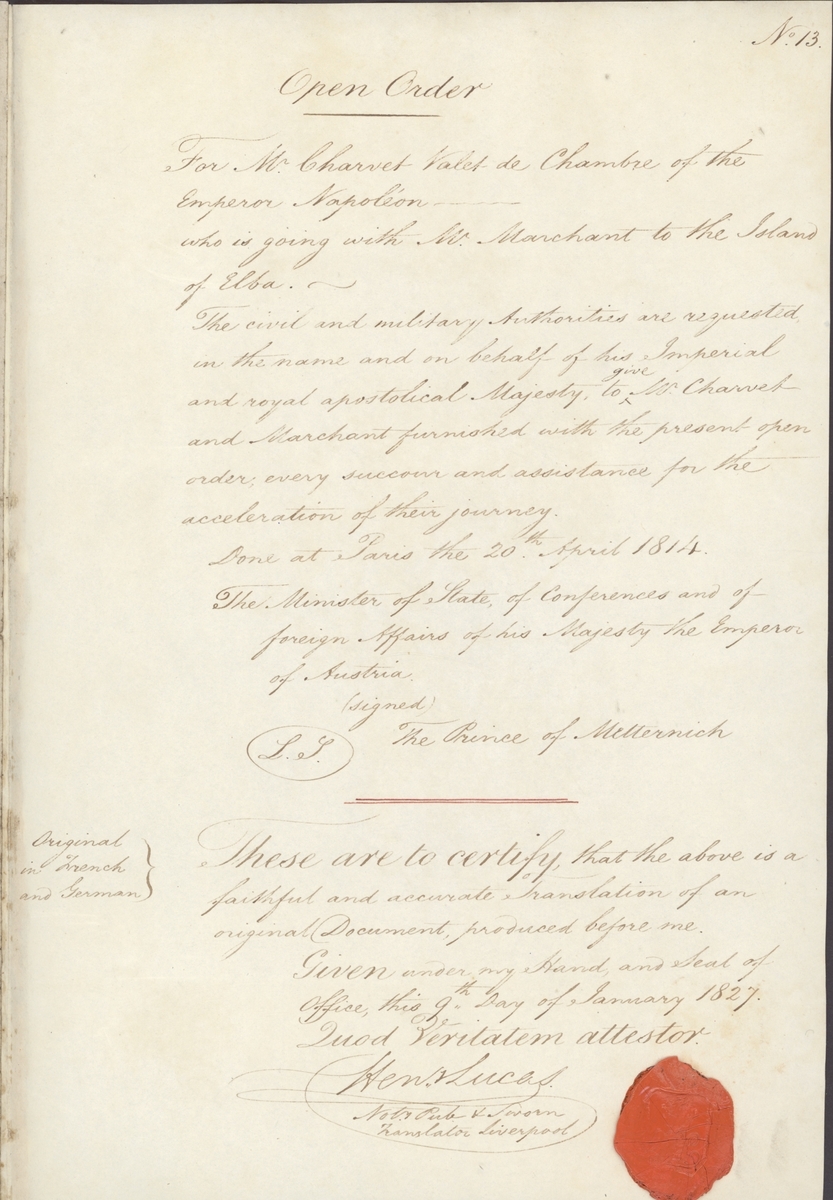 No. 13.
Open Order
For Mr. Charvet Valet de Chambre of the
Emperor Napoléon
who is going with Mr. Marchant to the Island
of Elba.
The civil and military Authorities are requested,
in the name and on behalf of his Imperial
and royal apostolical Majesty, to give Mr. Charvet
and Marchant furnished with the present open
order, every succour and assistance for the
acceleration of their journey.
Done at Paris the 20th. April 1814.
The Minister of State, of Conferences and of
foreign Affairs of his Majesty the Emperor
of Austria.
(signed)
L.S. The Prince of Metternich
Original
in French
and German
These are to certify, that the above is a
faithful and accurate Translation of an
original Document, produced before me.
Given under my Hand, and Seal of
Office, this 9th. Day of January 1827.
Quod Veritatem attestor.
Heny. Lucas.
Noty. Pub & Sworn
Translator Liverpool